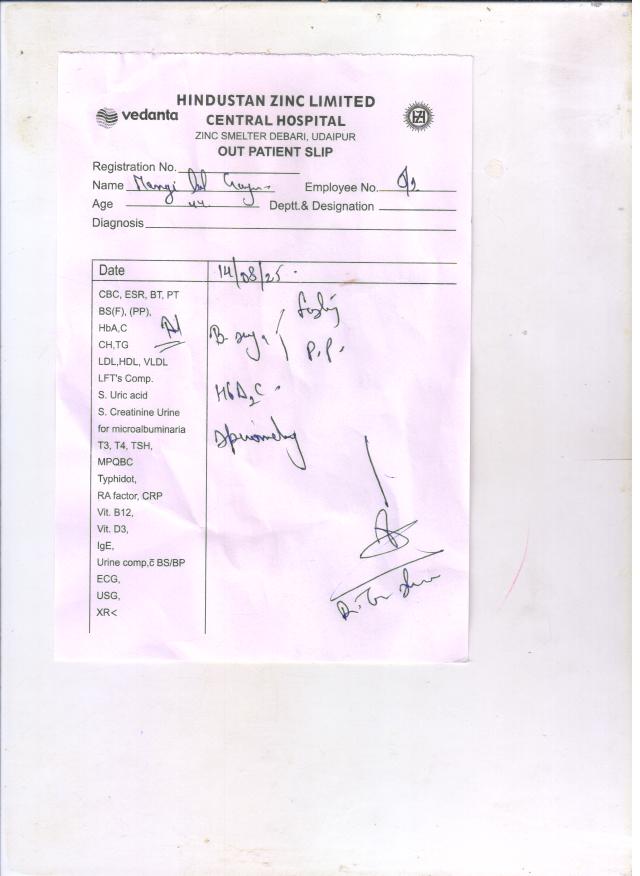 vedanta
HINDUSTAN ZINC LIMITED
CENTRAL HOSPITAL
ZINC SMELTER DEBARI, UDAIPUR
OUT PATIENT SLIP
Registration No.
Name Mangi lal
Employee No.
Age 44.
Deptt.& Designation
Diagnosis
Date 14/08/25.
CBC, ESR, BT, PT
BS(F), (PP),
HbA,C
CH,TG
LDL,HDL, VLDL
LFT's Comp.
S. Uric acid
S. Creatinine Urine
for microalbuminaria
T3, T4, TSH,
MPQBC
Typhidot,
RA factor, CRP
Vit. B12,
Vit. D3,
IgE,
Urine comp,c̄ BS/BP
ECG,
USG,
XR<
B. suga
fasting
P.P.
HbA₂C.
Spirometry